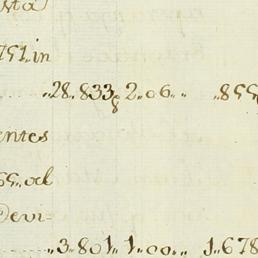 sta
751 in
28.833 8 2.06 .. 855
entes
65 al
Devi-
.. 3.801 1.00 .. 1.678